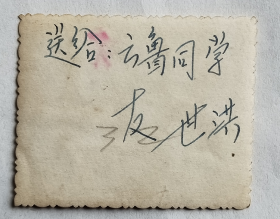 送给：云鲁同学
友 世洪